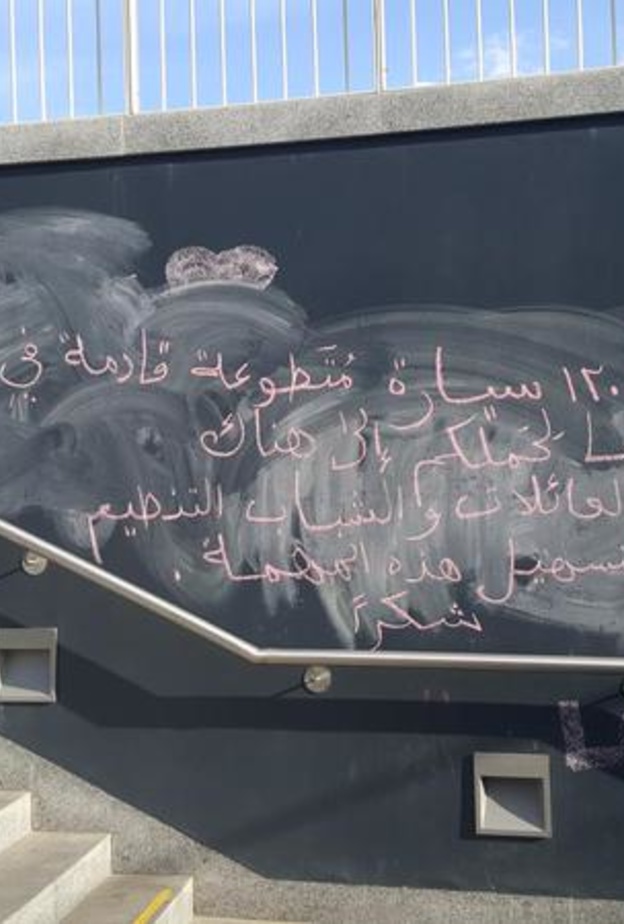 ١٢٠ سيارة مُتَطوعة قادمة في
لتحملكم إلى هناك
العائلات و الشباب التنظيم
تسهيل هذه المهمة.
شكراً